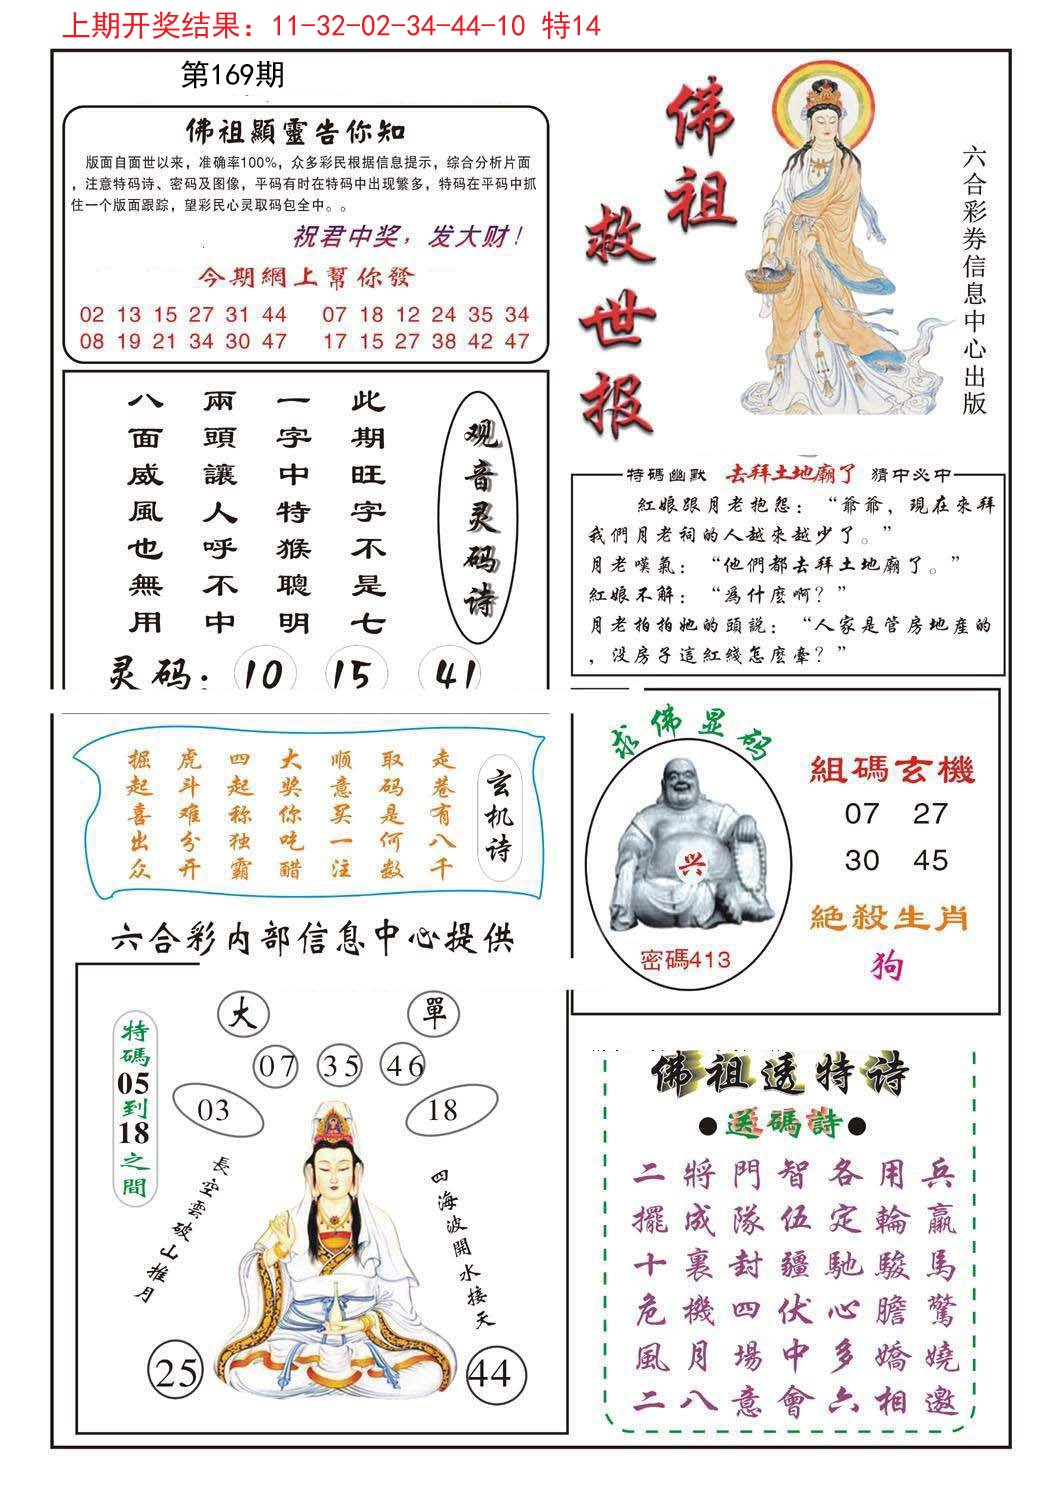 上期开奖结果：11-32-02-34-44-10 特14
第169期
佛祖顯靈告你知
版面自面世以来，准确率100%，众多彩民根据信息提示，综合分析片面
，注意特码诗、密码及图像，平码有时在特码中出现繁多，特码在平码中抓
住一个版面跟踪，望彩民心灵取码包全中。。
祝君中奖，发大财！
今期網上幫你發
02 13 15 27 31 44 07 18 12 24 35 34
08 19 21 34 30 47 17 15 27 38 42 47
佛祖
救世报
六合彩券信息中心出版
观音灵码诗
此期旺字不是七
一字中特猴聰明
兩頭讓人呼不中
八面威風也無用
灵码：10 15 41
特碼幽默 去拜土地廟了 猜中必中
紅娘跟月老抱怨：“爺爺，現在來拜
我們月老祠的人越來越少了。”
月老嘆氣：“他們都去拜土地廟了。”
紅娘不解：“爲什麽啊？”
月老拍拍她的頭説：“人家是管房地産的
，没房子這紅綫怎麽牽？”
玄机诗
走巷有八千
取码是何数
顺意买一注
大奖你吃醋
四起称独霸
虎斗难分开
掘起喜出众
六合彩内部信息中心提供
求佛显码
兴
密碼413
組碼玄機
07 27
30 45
絕殺生肖
狗
大 單
07 35 46
03 18
特碼05到18之間
長空雲破山推月
四海波開水接天
25 44
佛祖透特诗
●送碼詩●
二將門智各用兵
擺成隊伍定輪贏
十裏封疆馳駿馬
危機四伏心膽驚
風月場中多嬌嬈
二八意會六相邀